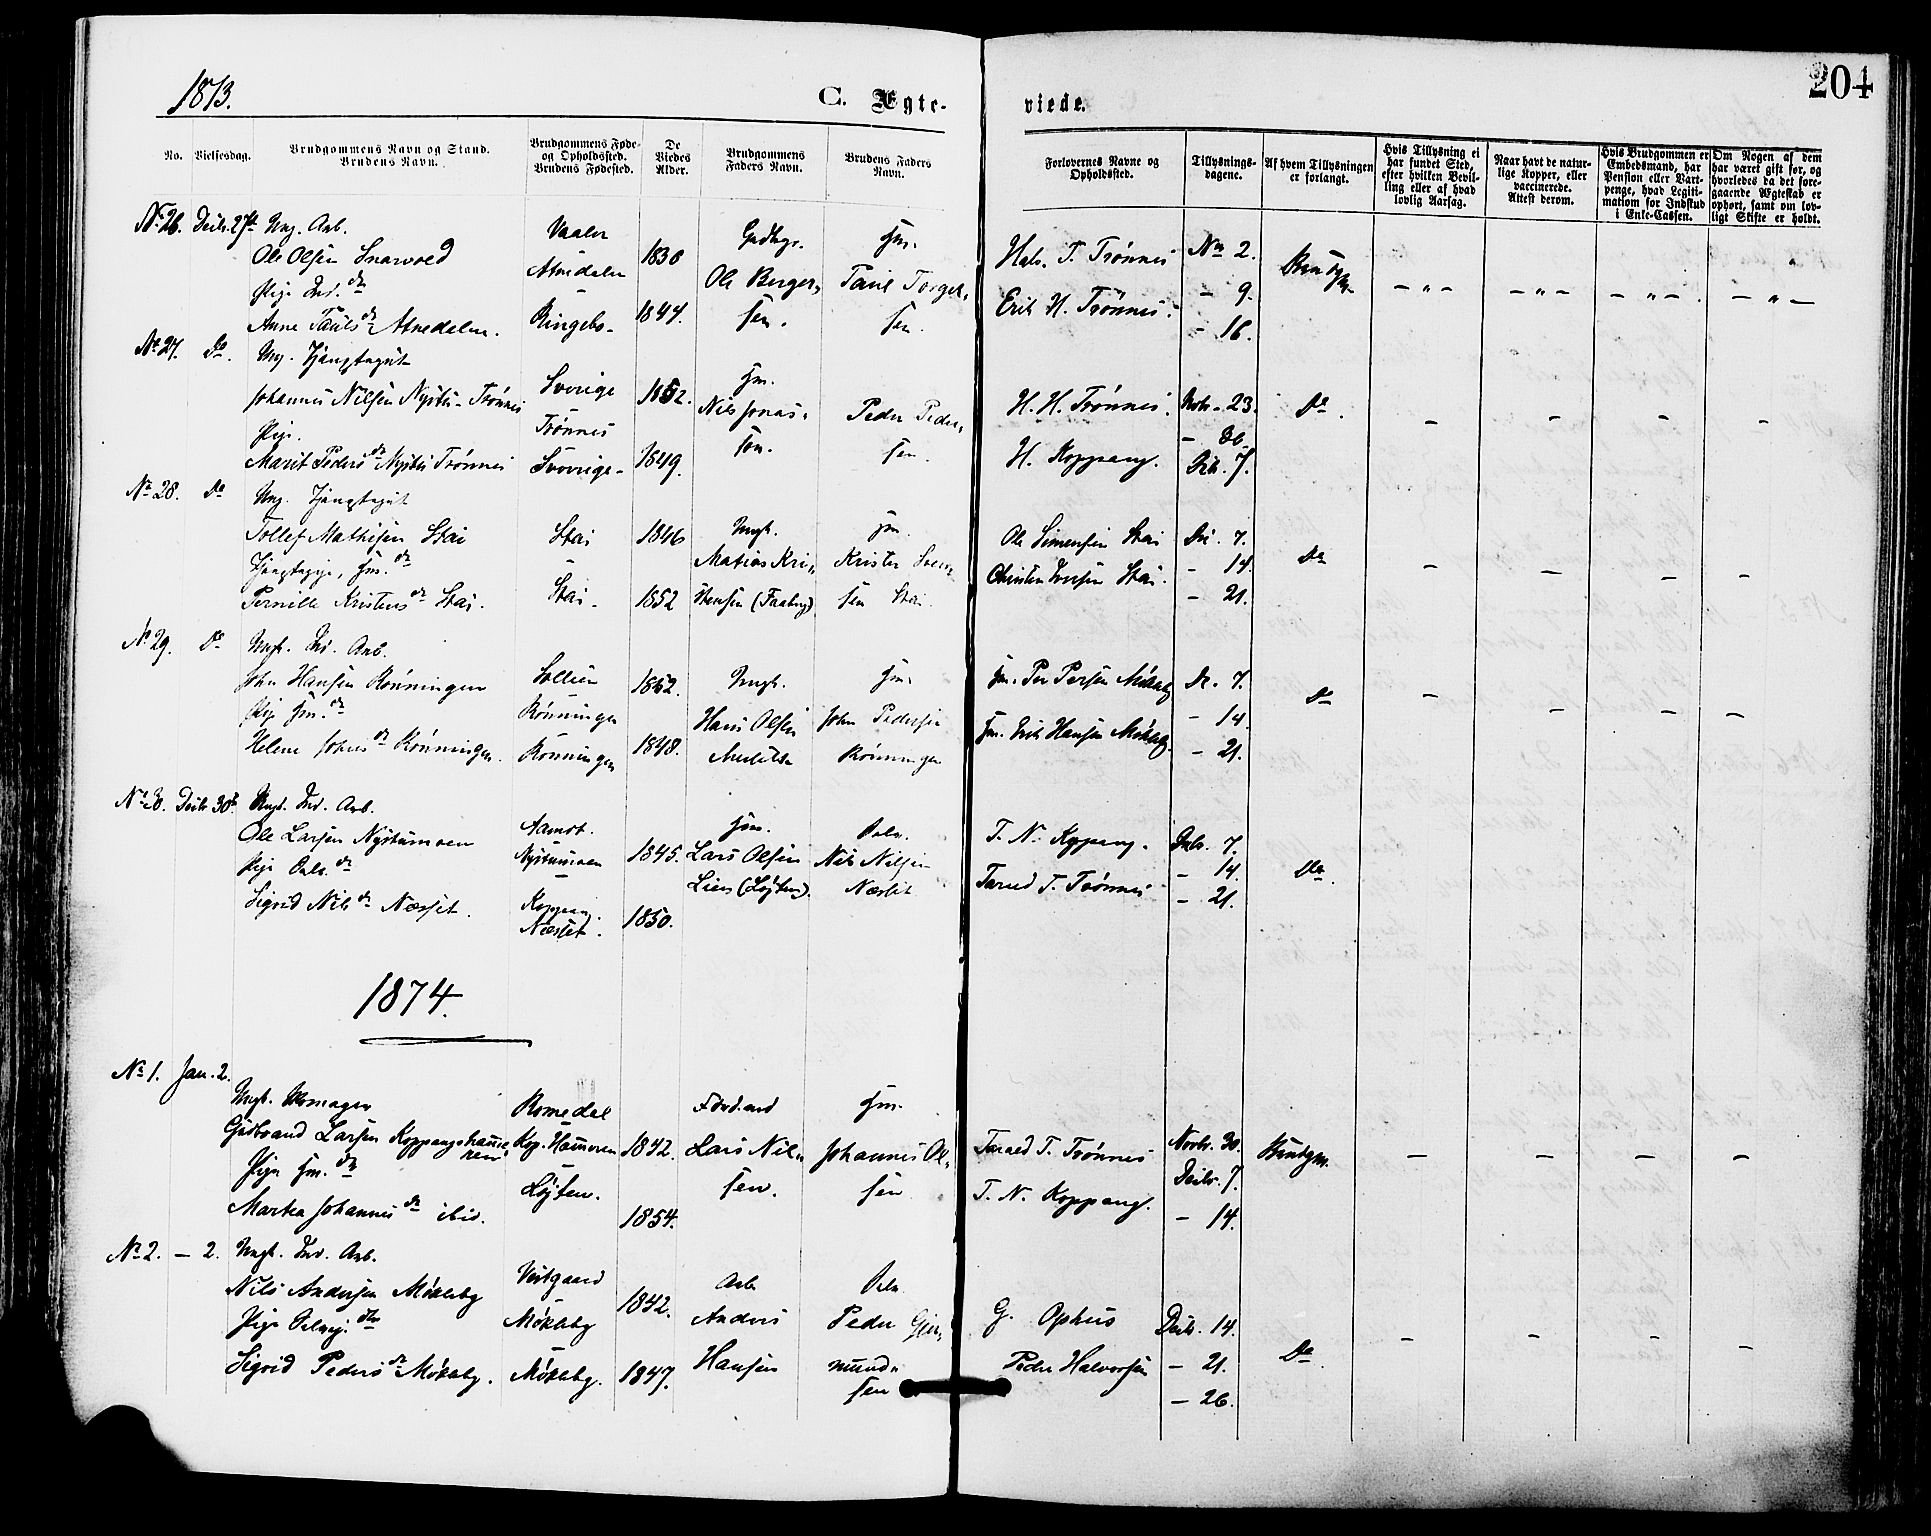 1873.
C. Ægte-
viede.
204
No.
Vielsesdag.
Brudgommens Navn og Stand.
Brudens Navn.
Brudgommens Føde-
og Opholdssted.
Brudens Fødested.
De
Viedes
Alder.
Brudgommens
Faders Navn.
Brudens Faders
Navn.
Forlovernes Navne og
Opholdssted.
Tillysnings-
dagene.
Af hvem Tillysningen
er forlangt.
Hvis Tillysning ei
har fundet Sted,
efter hvilken Bevil-
ling eller af hvad
lovlig Aarsag.
Naar havt de natur-
lige Kopper, eller
vaccinerede.
Attest derom.
Hvis Brudgommen er
Embedsmand, har
Pension eller Vart-
penge, hvad Legiti-
mation for Indskud
i Enke-Cassen.
Om Nogen af dem
har været gift før, og
hvorledes da det fore-
gaaende Ægteskab er
ophørt, samt om lov-
ligt Skifte er holdt.
No 26. Decbr. 27de Ung. Arb.
Ole Olsen Snarvold
Pige Ind. dr
Anne Pauls dr Atnedalen.
Vaaler
Atnedalen
Ringebo
1838
1844.
Gadbgr.
Ole Berger-
sen.
Hm.
Paul Torger-
sen.
Halv. T. Trønnes
Erik H. Trønnes.
No 2.
- 9.
- 16.
Brudgm.
No 27. Do. Ung. Tjenstegut
Johannes Nilsen Nystu-Trønnes
Pige.
Marit Peders dr Nystu Trønnes
Sverige
Trønnes
Sverige
1852.
1849.
Hm.
Nils Jonas-
son.
Peder Peder-
sen.
H. H. Trønnes.
H. Koppang.
Novb. 23.
- 30.
Dcb. 7.
Do.
No 28. Do Ung. Tjenstegut
Tollef Mathisen Stai
Tjenstepige, Hm. dr
Pernille Kristens dr Stai.
Stai
Stai.
1846
1852
Ungk.
Matias Kri-
stensen (Faaberg)
Hm.
Krister Iver-
sen Stai.
Ole Simensen Stai
Christen Iversen Stai.
De. 7.
- 14.
- 21.
Do
No 29. Do Ungk. Ind. Arb.
John Hansen Rønningen
Pige Hm. dr
Helene Johns dr Rønningen.
Sollien
Rønningen
Rønningen
1852.
1848.
Ungk.
Hans Olsen
Hm.
John Pedersen
Rønningen
Hm. Per Persen Møkleby
Hm. Erik Hansen Møkleby.
De. 7.
- 14.
- 21.
Do
No 30. Decbr 30te Ungk. Ind. Arb.
Ole Larsen Nystumoen
Sigrid Nils dr Næsset.
Aamot.
Nystumoen
Koppang.
Næsset.
1845.
1850.
Hm.
Lars Olsen
Lien (Løjten).
Nils Nilsen
Næsset
T. N. Koppang.
Taraed T. Trønnes
Dcbr. 7.
- 14.
- 21.
Do.
1874.
No 1. Jan. 2.
Ungk. Skomager
Gudbrand Larsen Koppangshamme-
ren
Pige Hm. dr
Martea Johannes dr ibid.
Romedal
Kop. Hammeren
Løjten.
1842.
1854.
Lars Nil-
sen.
Hm.
Johannes Ol-
sen
Taraed T. Trønnes
T. N. Koppang.
Novbr. 30.
Decbr. 7.
- 14.
Brudgm.
No 2. - 2. Ungk. Ind. Arb.
Nils Andersen Møkleby
Sigrid Peders dr Møkleby.
Vestgaard
Møkleby
Møkleby.
1842.
1847.
Arb
Anders
Hansen
Peder Gjer-
mund-
sen
G. Ophus
Peder Halvorsen
Decbr. 14.
- 21.
- 26.
Do.